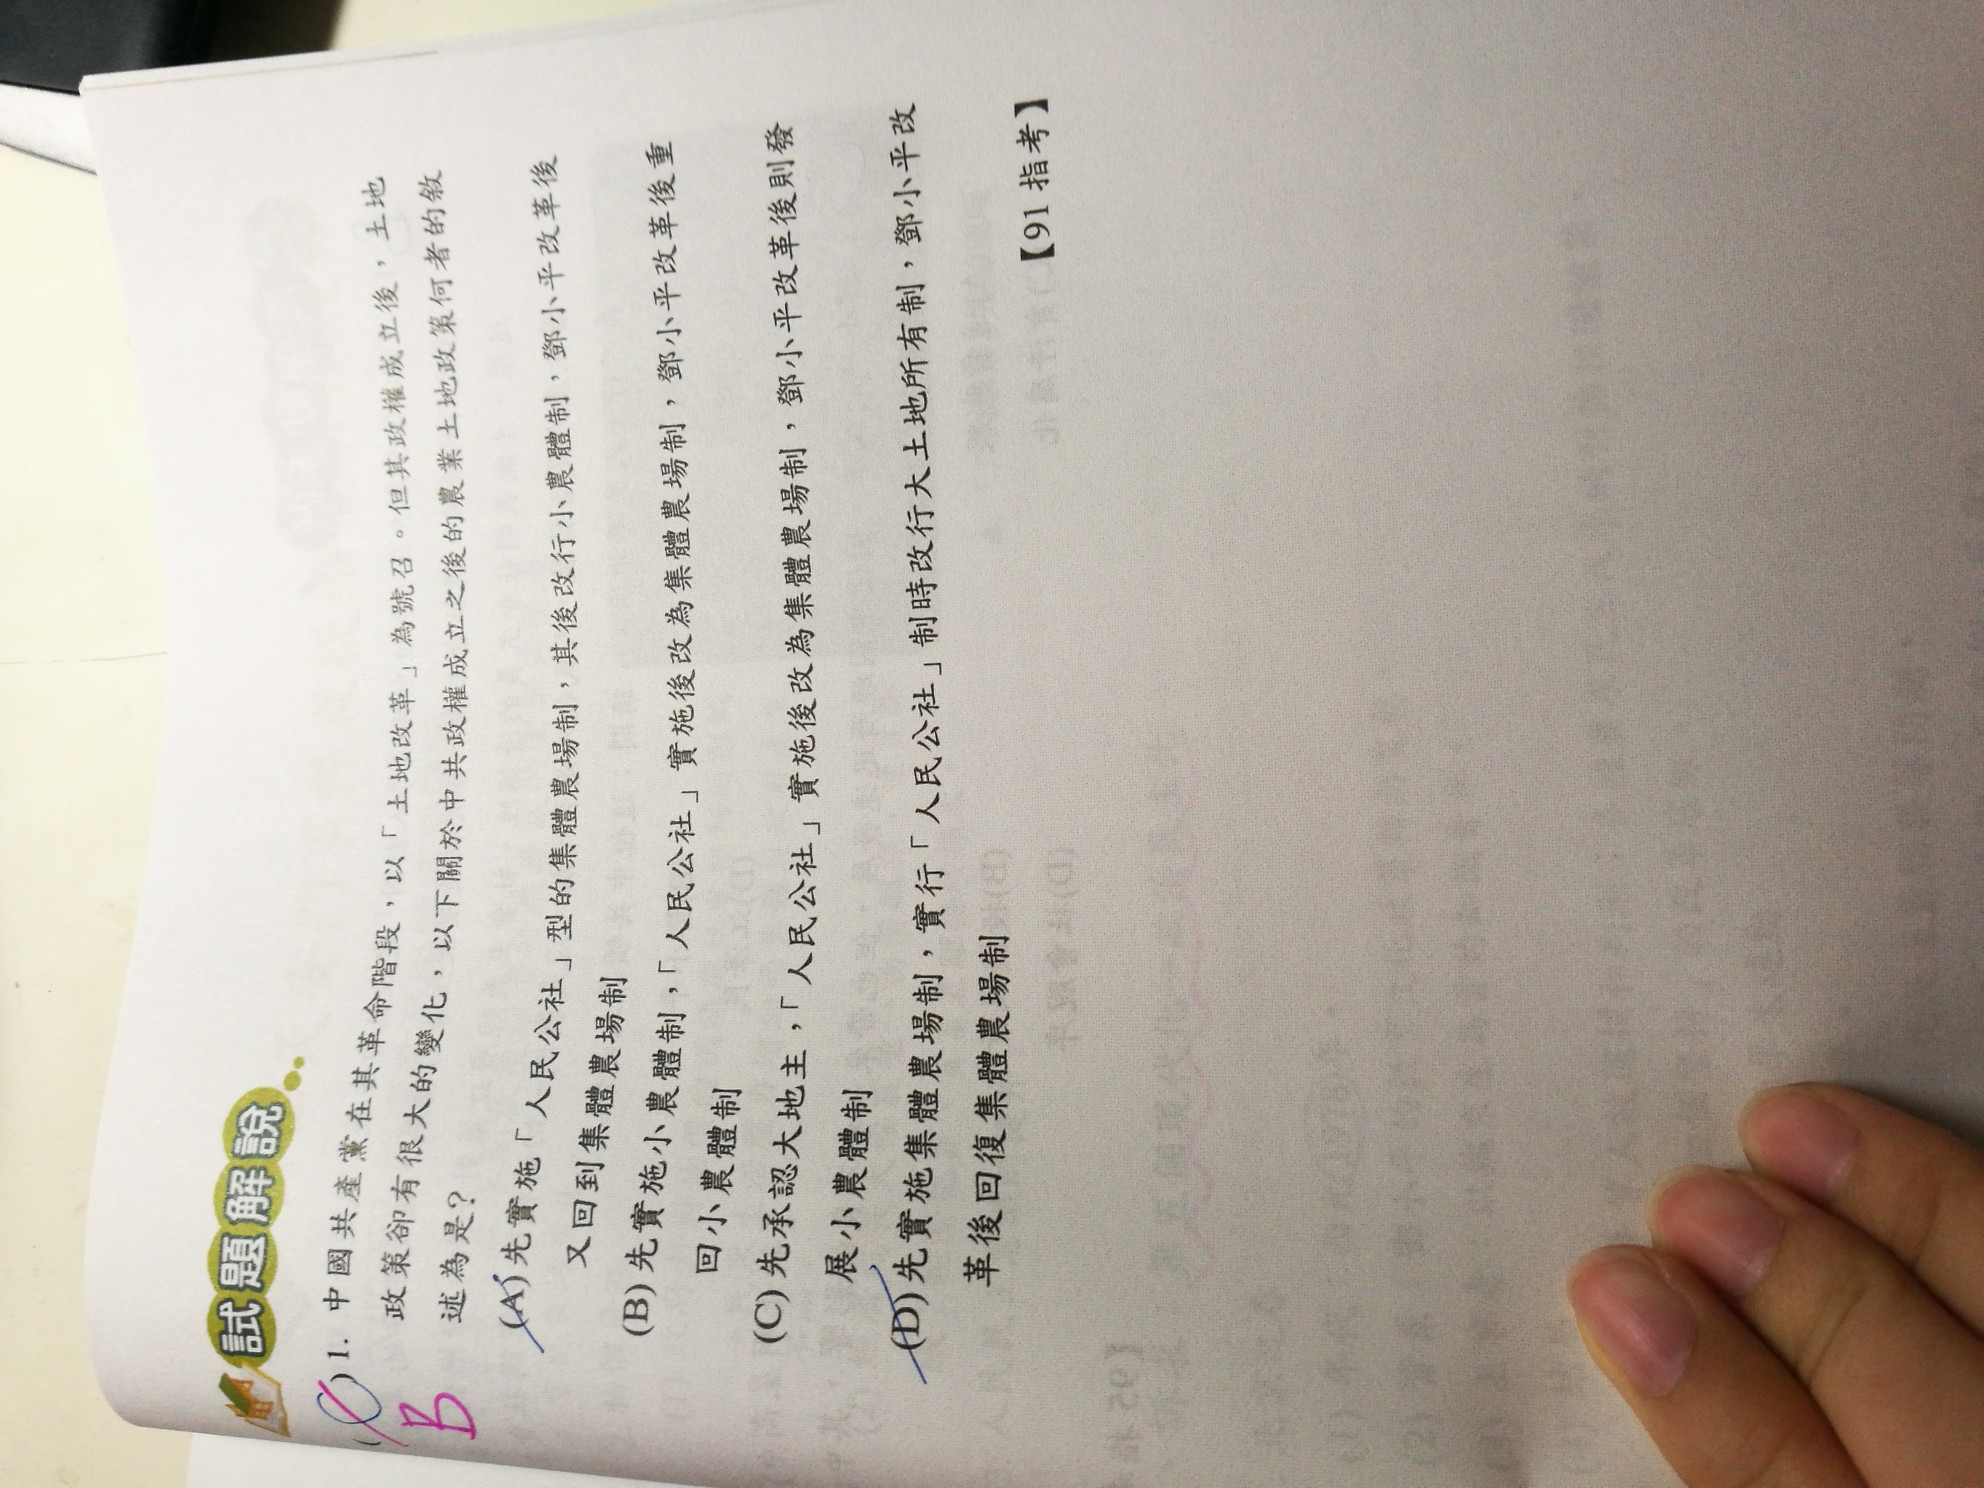 試題解說
( C )1. 中國共產黨在其革命階段，以「土地改革」為號召。但其政權成立後，土地
B
政策卻有很大的變化，以下關於中共政權成立之後的農業土地政策何者的敘
述為是？
(A)先實施「人民公社」型的集體農場制，其後改行小農體制，鄧小平改革後
又回到集體農場制
(B)先實施小農體制，「人民公社」實施後改為集體農場制，鄧小平改革後重
回小農體制
(C)先承認大地主，「人民公社」實施後改為集體農場制，鄧小平改革後則發
展小農體制
(D)先實施集體農場制，實行「人民公社」制時改行大土地所有制，鄧小平改
革後回復集體農場制
【91 指考】